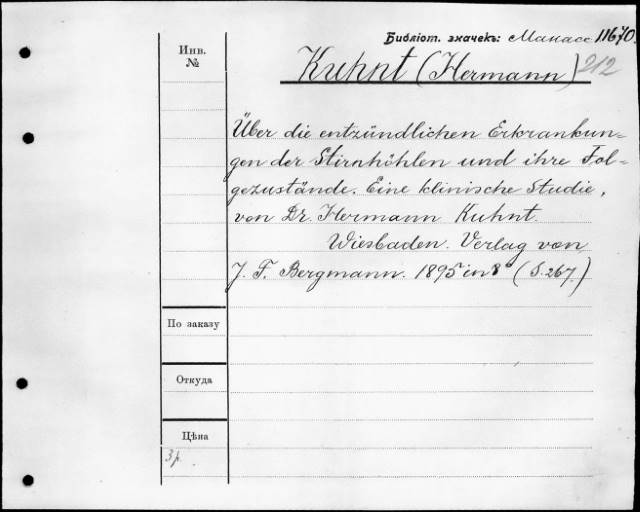 Библіот. значекъ: Манасс 11670
212
Инв.
№
Kuhnt (Hermann)
Über die entzündlichen Erkrankun-
gen der Stirnhöhlen und ihre Fol-
gezustände. Eine klinische Studie,
von Dr. Hermann Kuhnt.
Wiesbaden. Verlag von
J. F. Bergmann. 1895 in 8° (S. 267.)
По заказу
Откуда
Цѣна
3 р.